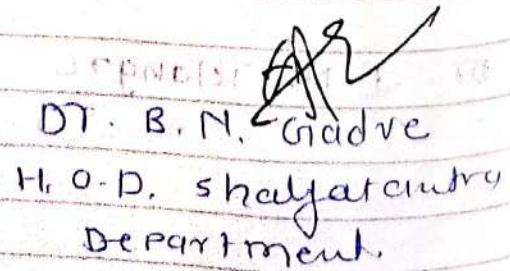 DT. B. N. Gadre
H. O. D. shalyatantra
Department.